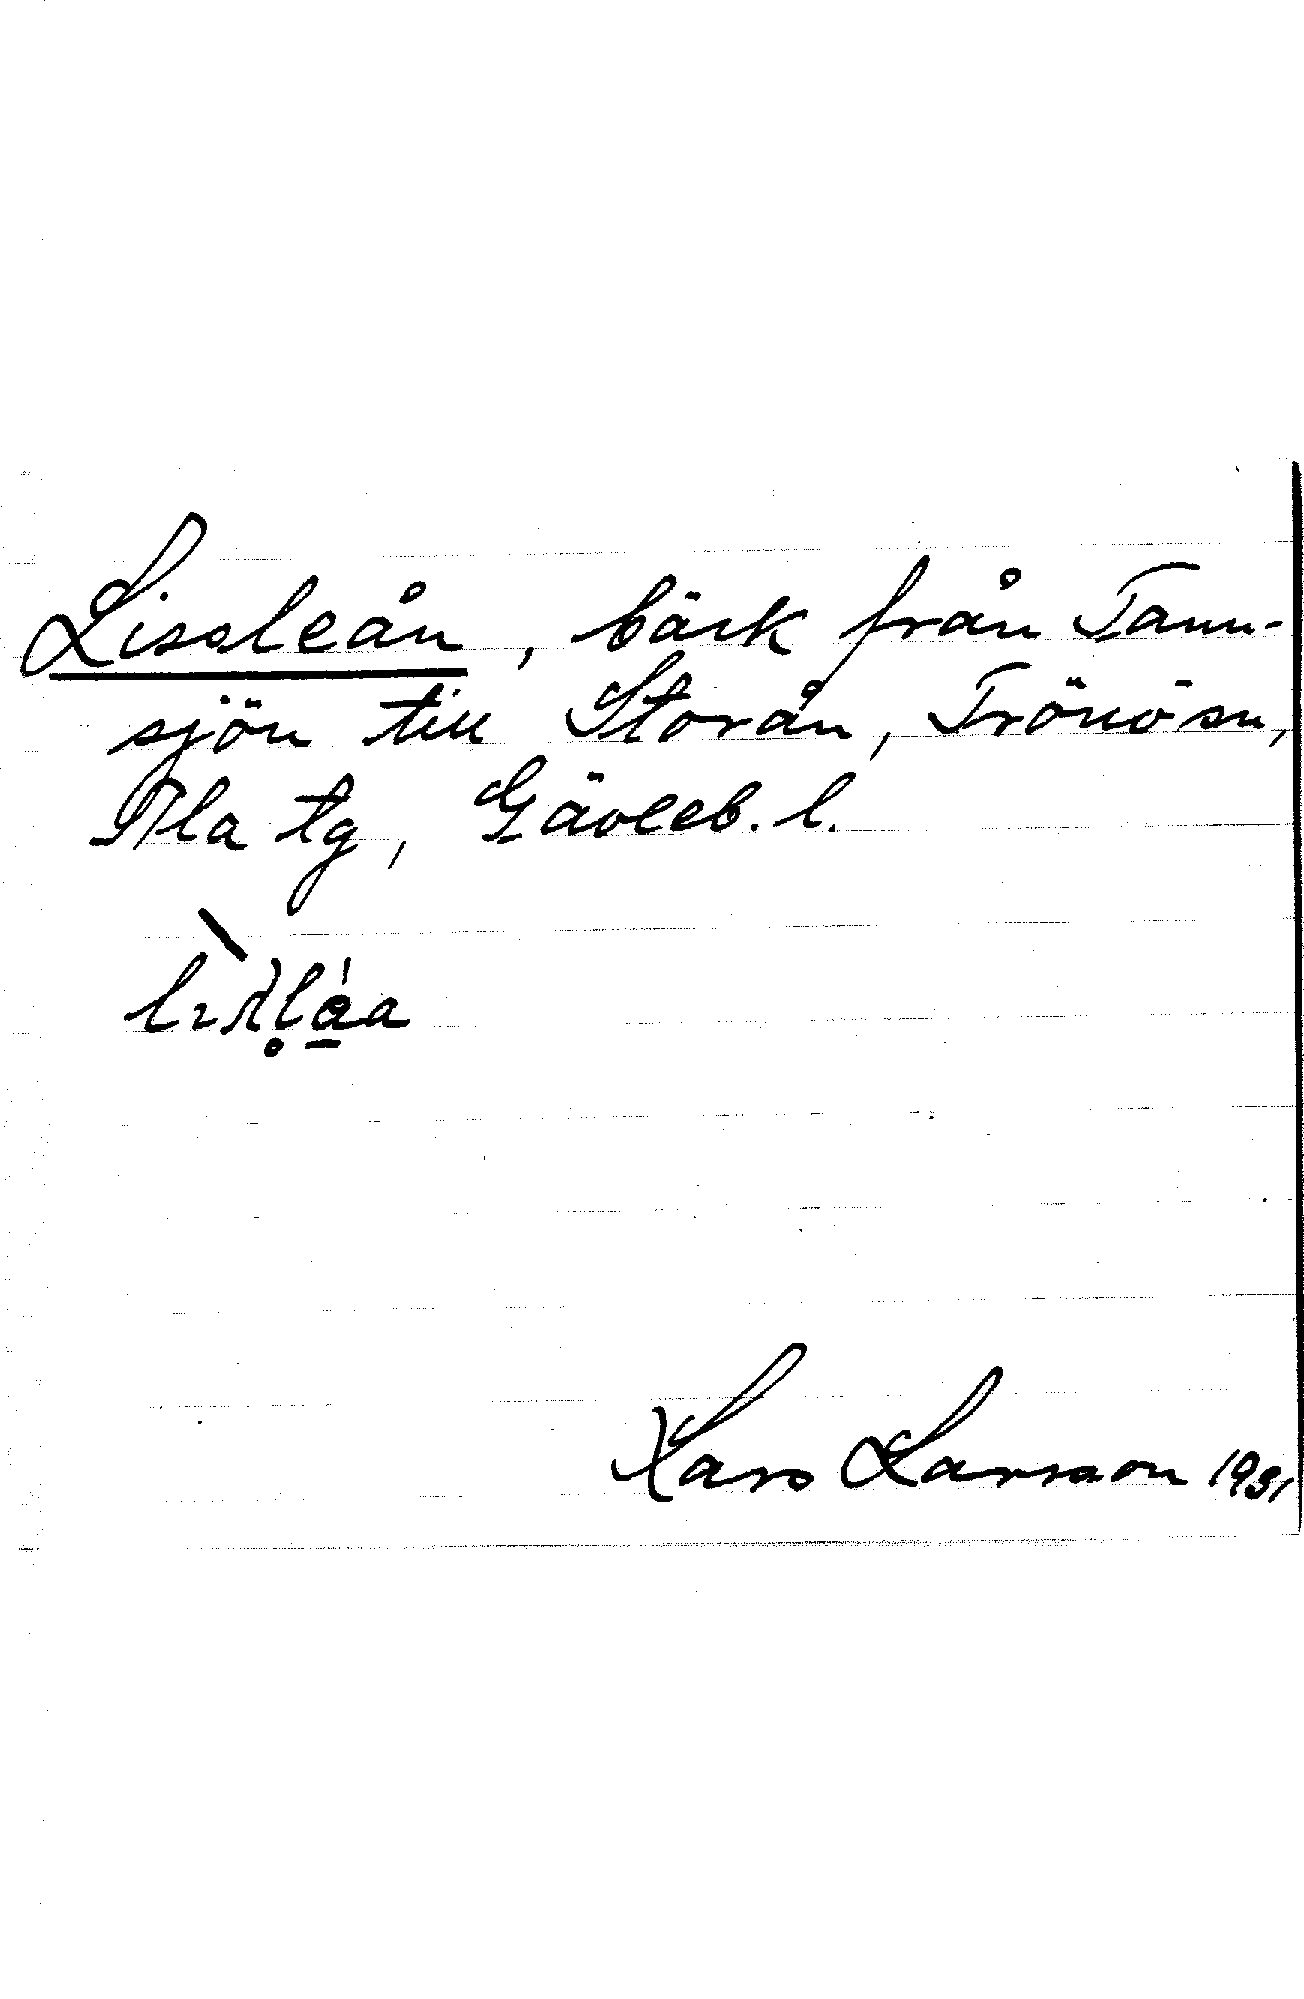 Lissleån, bäck från Tann-
sjön till Storån, Trönö sn,
Ala tg, Gävleb. l.
Lars Larsson 1931